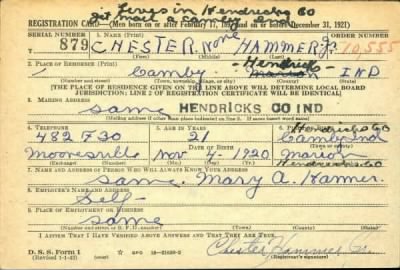 Lives in Hendricks Co
get mail at Camby Ind
REGISTRATION CARD—(Men born on or after February 17, 1897 and on or before December 31, 1921)
SERIAL NUMBER
1. NAME (Print)
ORDER NUMBER
S 879
CHESTER None HAMMER Jr
10,555
2. PLACE OF RESIDENCE (Print)
Hendricks
Camby Marion IND
(Number and street) (Town, township, village, or city) (County) (State)
[THE PLACE OF RESIDENCE GIVEN ON THE LINE ABOVE WILL DETERMINE LOCAL BOARD
JURISDICTION; LINE 2 OF REGISTRATION CERTIFICATE WILL BE IDENTICAL]
3. MAILING ADDRESS
Same HENDRICKS CO IND
4. TELEPHONE
5. AGE IN YEARS
Hendricks Co
482 F 30
21
Camby Ind
DATE OF BIRTH
Mooresville
Nov 4 - 1920
Marion
Hendricks Co
7. NAME AND ADDRESS OF PERSON WHO WILL ALWAYS KNOW YOUR ADDRESS
Same. Mary A. Hammer.
8. EMPLOYER'S NAME AND ADDRESS
Self
9. PLACE OF EMPLOYMENT OR BUSINESS
Same
(Number and street or R. F. D. number) (Town) (County) (State)
I AFFIRM THAT I HAVE VERIFIED ABOVE ANSWERS AND THAT THEY ARE TRUE.
D. S. S. Form 1
(Revised 1-1-42)
Chester Hammer Jr.
(Registrant's signature)